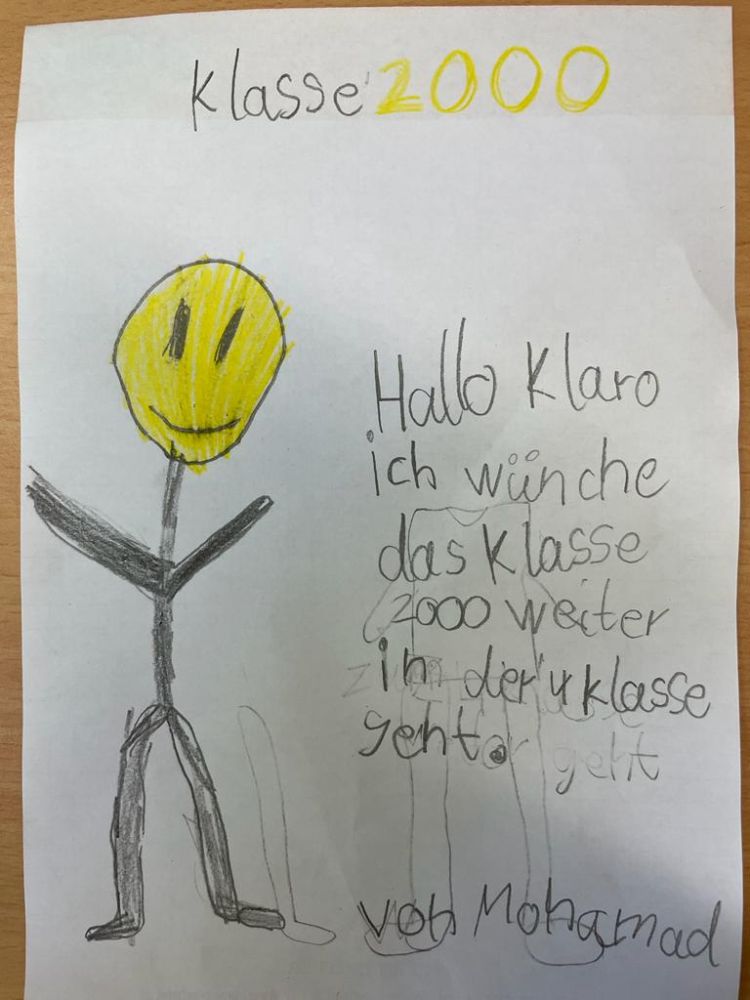 Klasse 2000
Hallo Klaro
ich wünche
das Klasse
2000 weiter
in der 4 Klasse
geht.
geht
von Mohamad